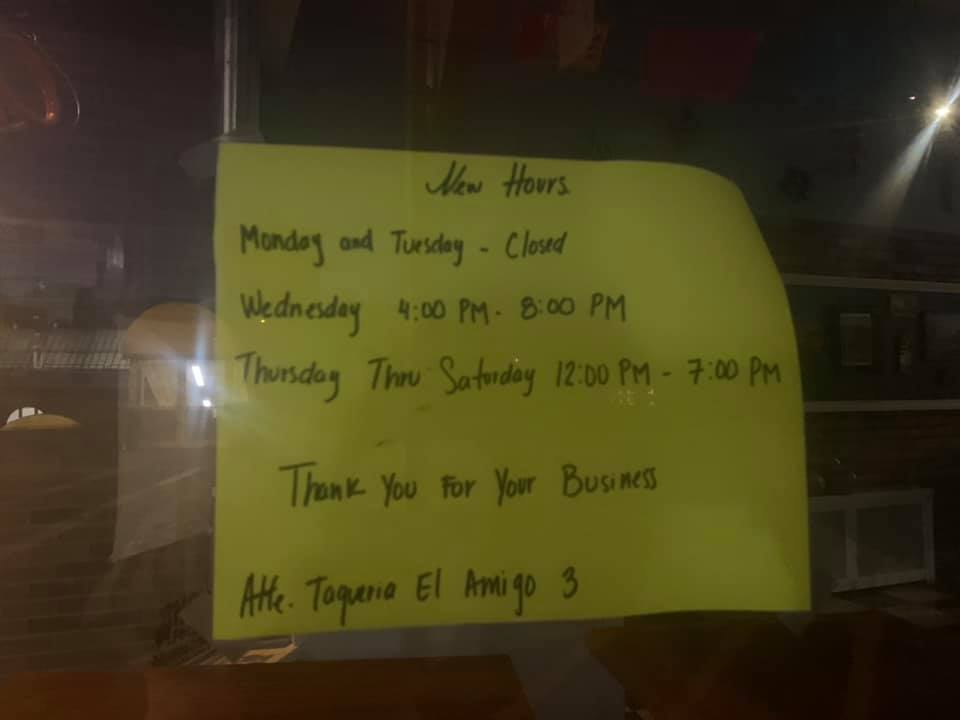 New Hours
Monday and Tuesday - Closed
Wednesday 4:00 PM - 8:00 PM
Thursday Thru Saturday 12:00 PM - 7:00 PM
Thank You For Your Business
Atte. Taqueria El Amigo 3